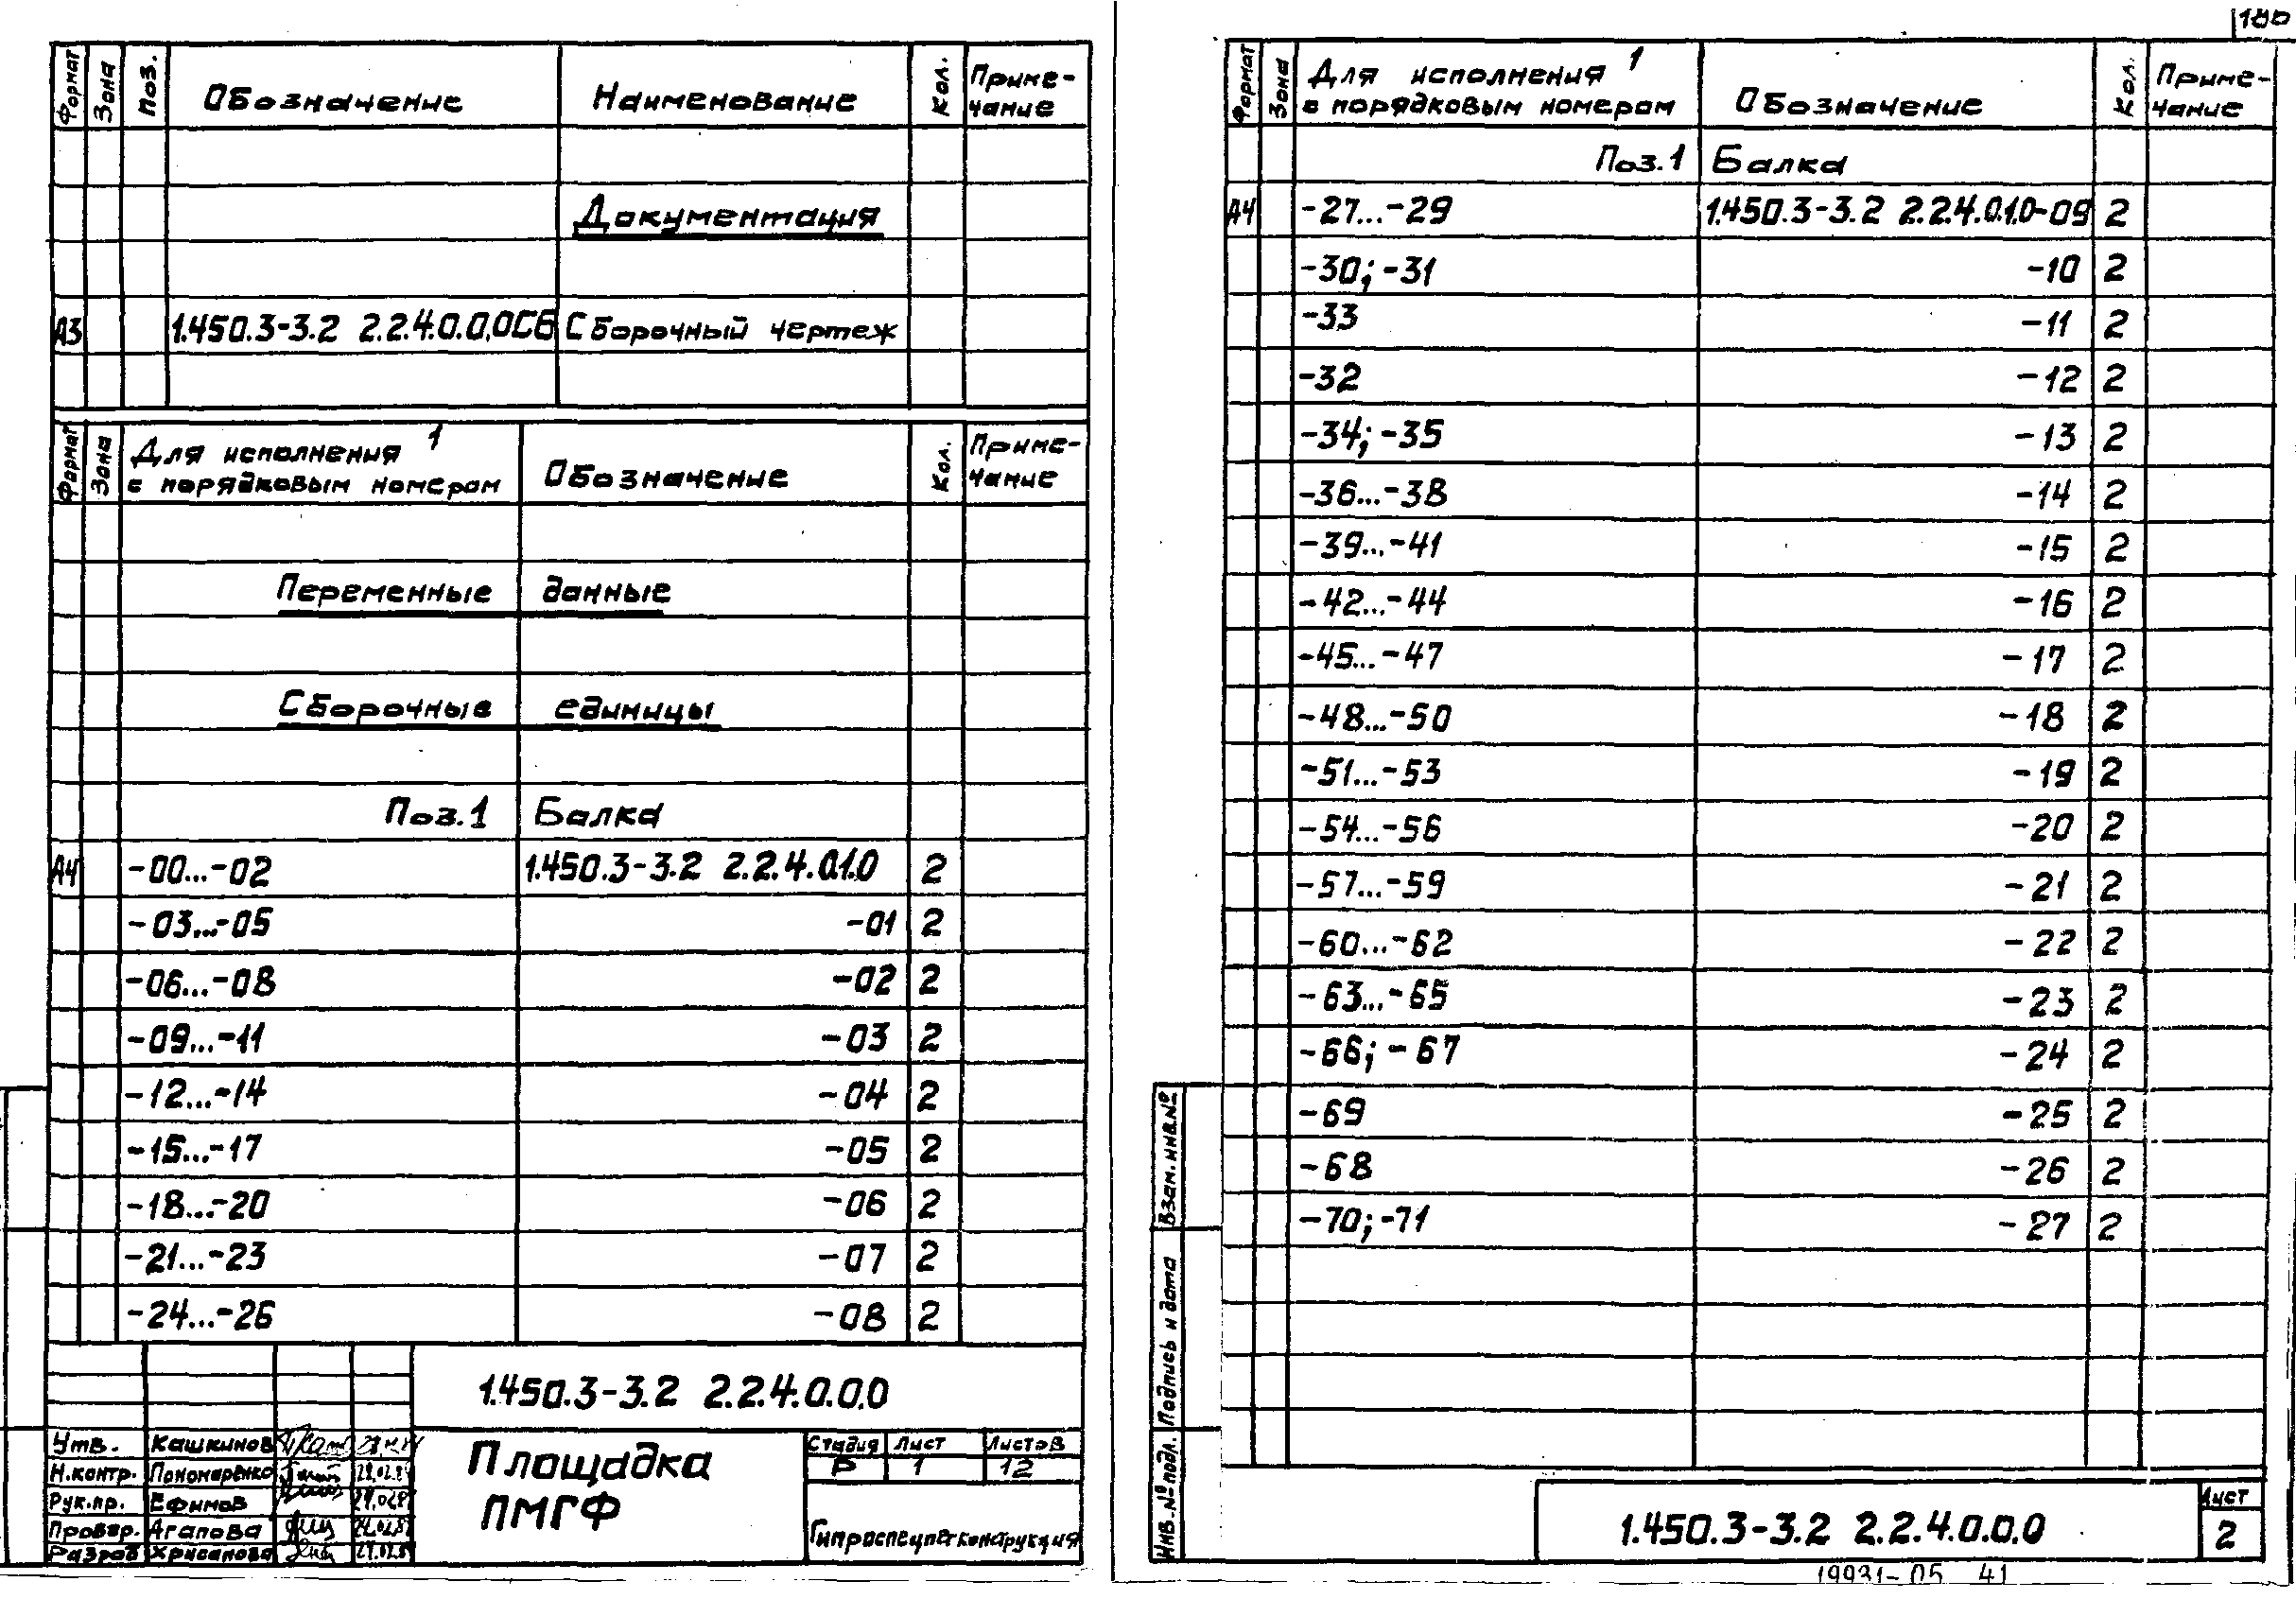 Формат Зона Поз. Обозначение Наименование Кол. Приме-
чание
Документация
А3 1.450.3-3.2 2.2.4.0.0.0СБ Сборочный чертеж
Формат Зона Для исполнения 1
с порядковым номером Обозначение Кол. Приме-
чание
Переменные данные
Сборочные единицы
Поз.1 Балка
А4 -00...-02 1.450.3-3.2 2.2.4.0.1.0 2
-03...-05 -01 2
-06...-08 -02 2
-09...-11 -03 2
-12...-14 -04 2
-15...-17 -05 2
-18...-20 -06 2
-21...-23 -07 2
-24...-26 -08 2
1.450.3-3.2 2.2.4.0.0.0
Утв. Кашкинов
Н.контр. Пономаренко
Рук.пр. Ефимов
Провер. Агапова
Разраб Хрисанова
Площадка
ПМГФ
Стадия Лист Листов
Р 1 12
Гипроспецлегконструкция
Формат Зона Для исполнения 1
с порядковым номером Обозначение Кол. Приме-
чание
Поз.1 Балка
А4 -27...-29 1.450.3-3.2 2.2.4.0.1.0-09 2
-30; -31 -10 2
-33 -11 2
-32 -12 2
-34; -35 -13 2
-36...-38 -14 2
-39...-41 -15 2
-42...-44 -16 2
-45...-47 -17 2
-48...-50 -18 2
-51...-53 -19 2
-54...-56 -20 2
-57...-59 -21 2
-60...-62 -22 2
-63...-65 -23 2
-66; -67 -24 2
-69 -25 2
-68 -26 2
-70; -71 -27 2
Взам. инв.№
Подпись и дата
Инв.№ подл.
1.450.3-3.2 2.2.4.0.0.0
Лист
2
19931-05 41